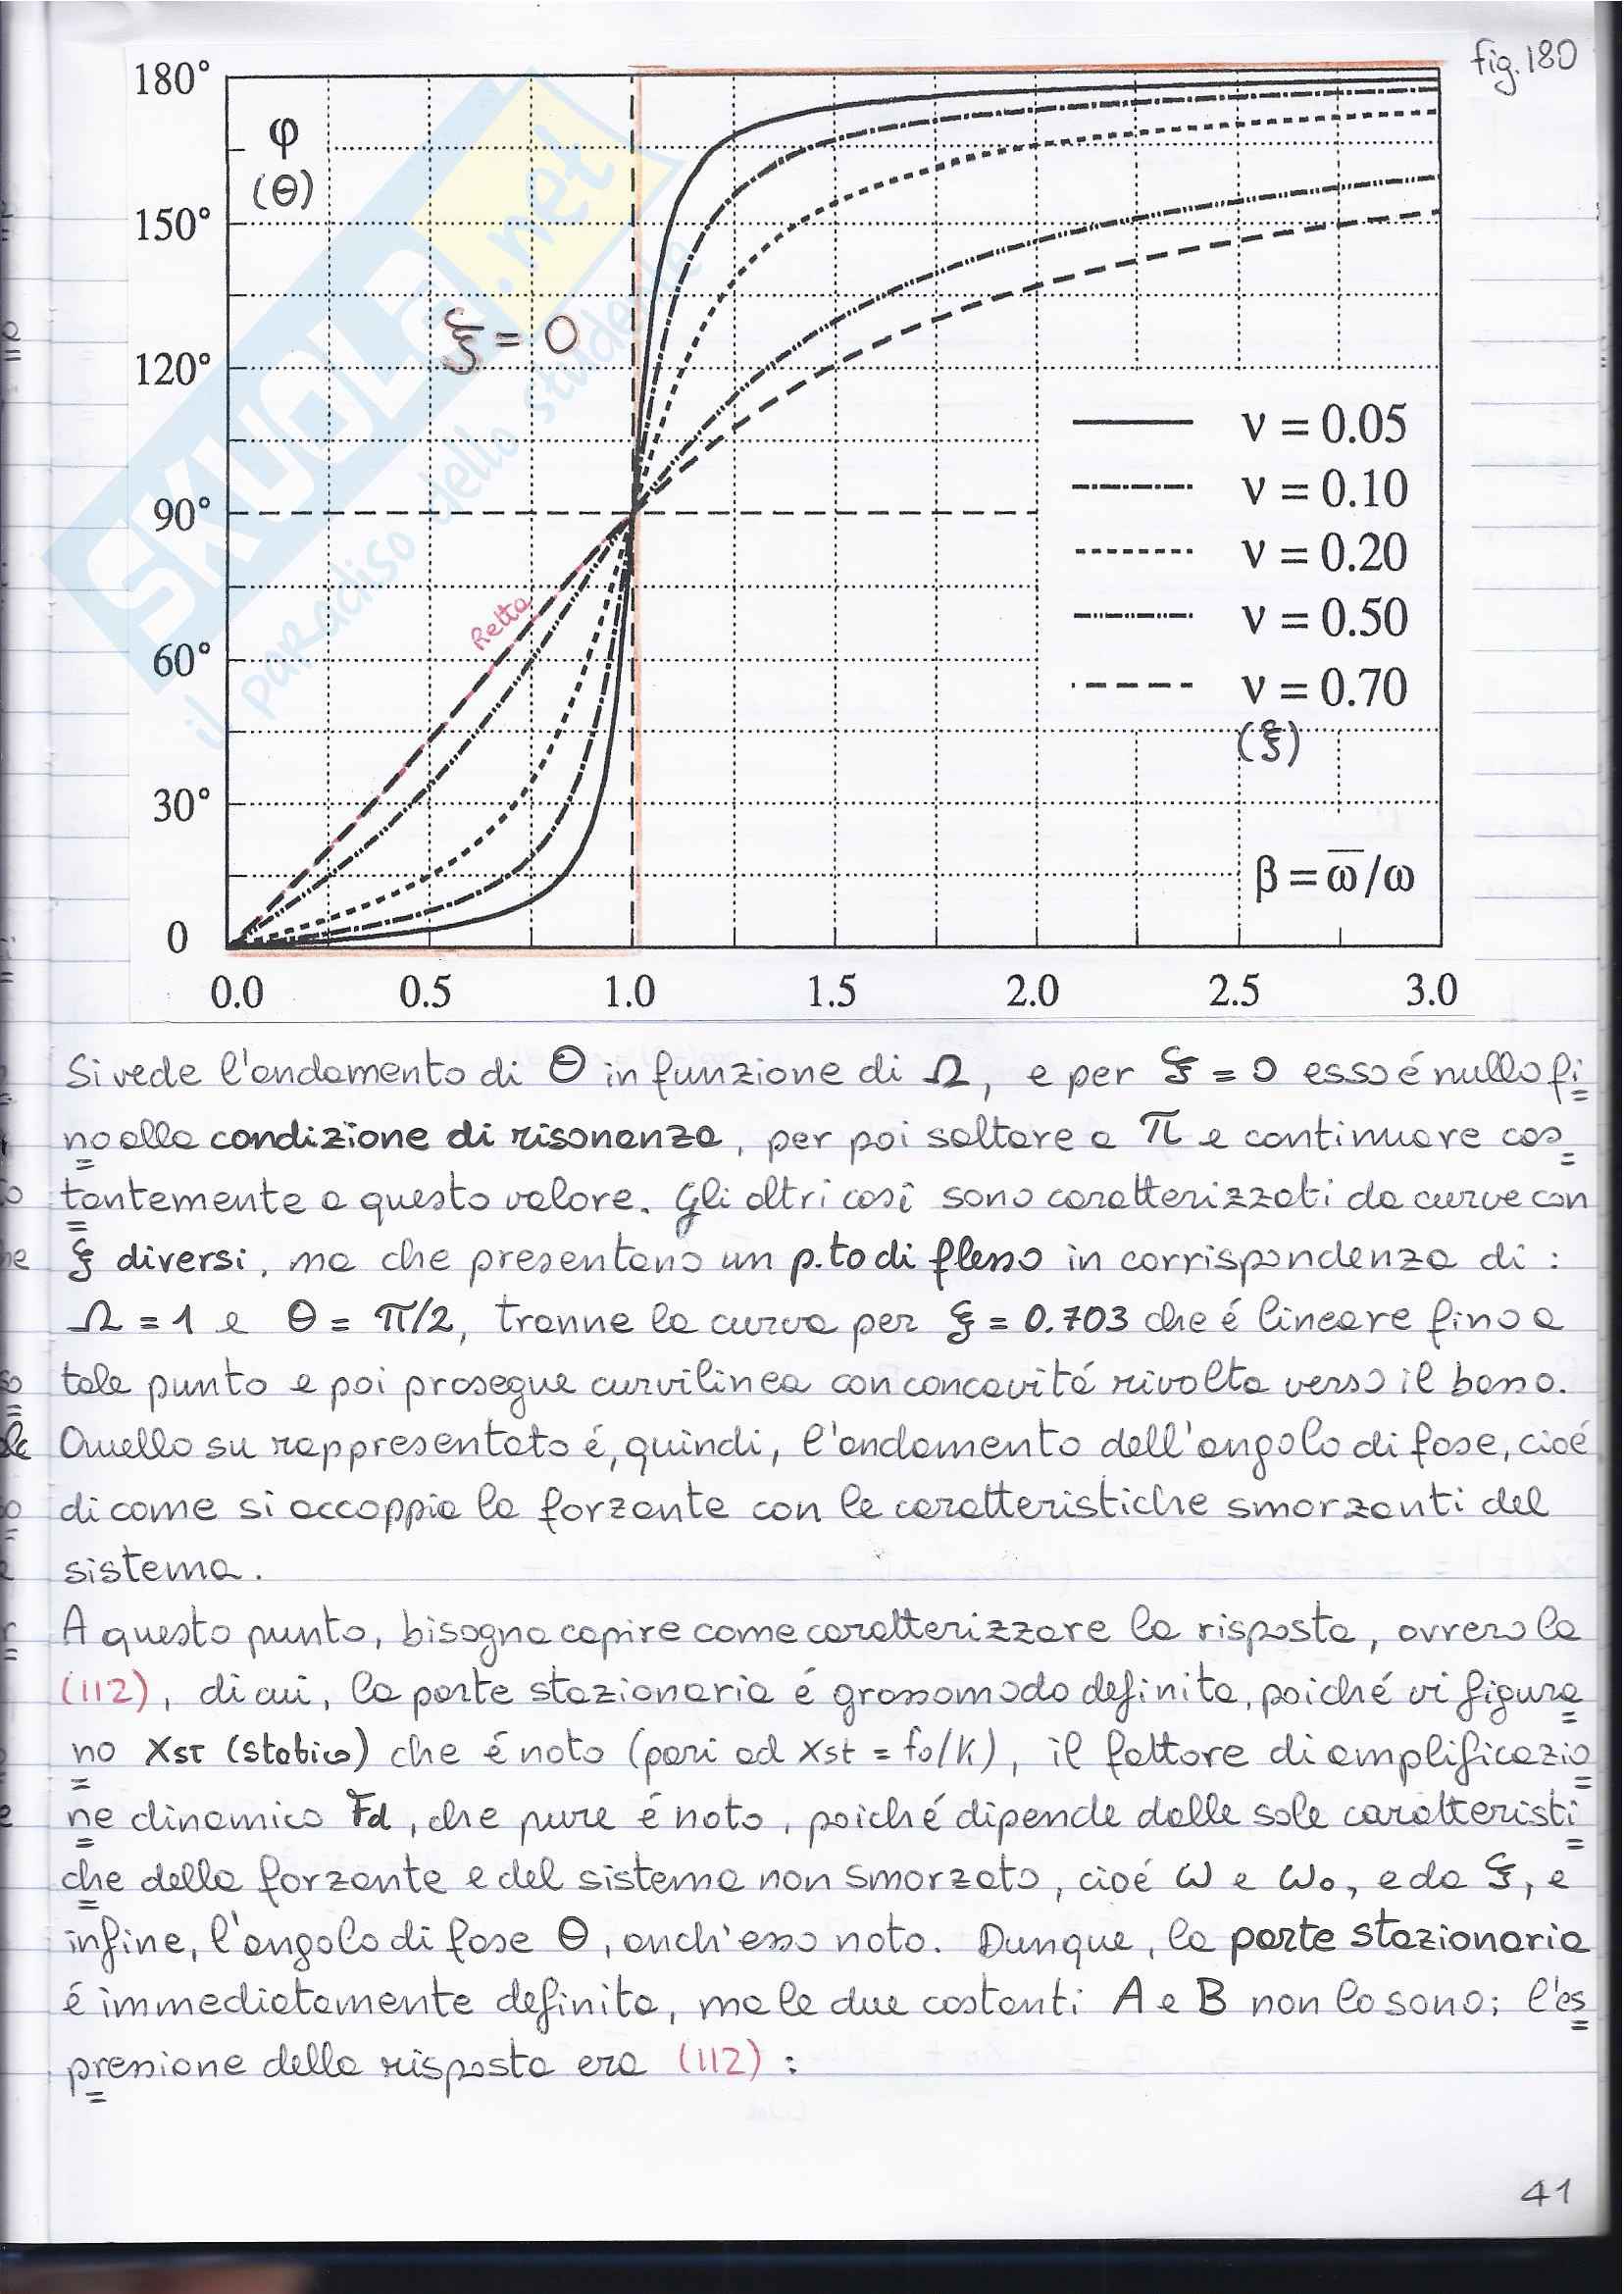 fig.180
180°
φ
(θ)
150°
ξ = 0
120°
ν = 0.05
ν = 0.10
90°
ν = 0.20
Retta
ν = 0.50
60°
ν = 0.70
(ξ)
30°
β = ω̅/ω
0
0.0 0.5 1.0 1.5 2.0 2.5 3.0
SKUOLA.net
il paradiso dello studente
Si vede l'andamento di θ in funzione di Ω, e per ξ = 0 esso é nullo fi
no alla condizione di risonanza, per poi saltare a π e continuare cos
tantemente a questo valore. Gli altri casi sono caratterizzati da curve con
ξ diversi, ma che presentano un p.to di flesso in corrispondenza di :
Ω = 1 e θ = π/2, tranne la curva per ξ = 0.703 che é lineare fino a
tale punto e poi prosegue curvilinea con concavitá rivolta verso il basso.
Quello su rappresentato é, quindi, l'andamento dell'angolo di fase, cioé
di come si accoppia la forzante con le caratteristiche smorzanti del
sistema.
A questo punto, bisogna capire come caratterizzare la risposta, ovvero la
(112), di cui, la parte stazionaria é grossomodo definita, poiché vi figura
no Xst (statico) che é noto (pari ad Xst = fo/K), il fattore di amplificazio
ne dinamico Fd, che pure é noto, poiché dipende dalle sole caratteristi
che della forzante e del sistema non smorzato, cioé ω e ωo, e da ξ, e
infine, l'angolo di fase θ, anch'esso noto. Dunque, la parte stazionaria
é immediatamente definita, ma le due costanti A e B non lo sono; l'es
pressione della risposta era (112) :
41